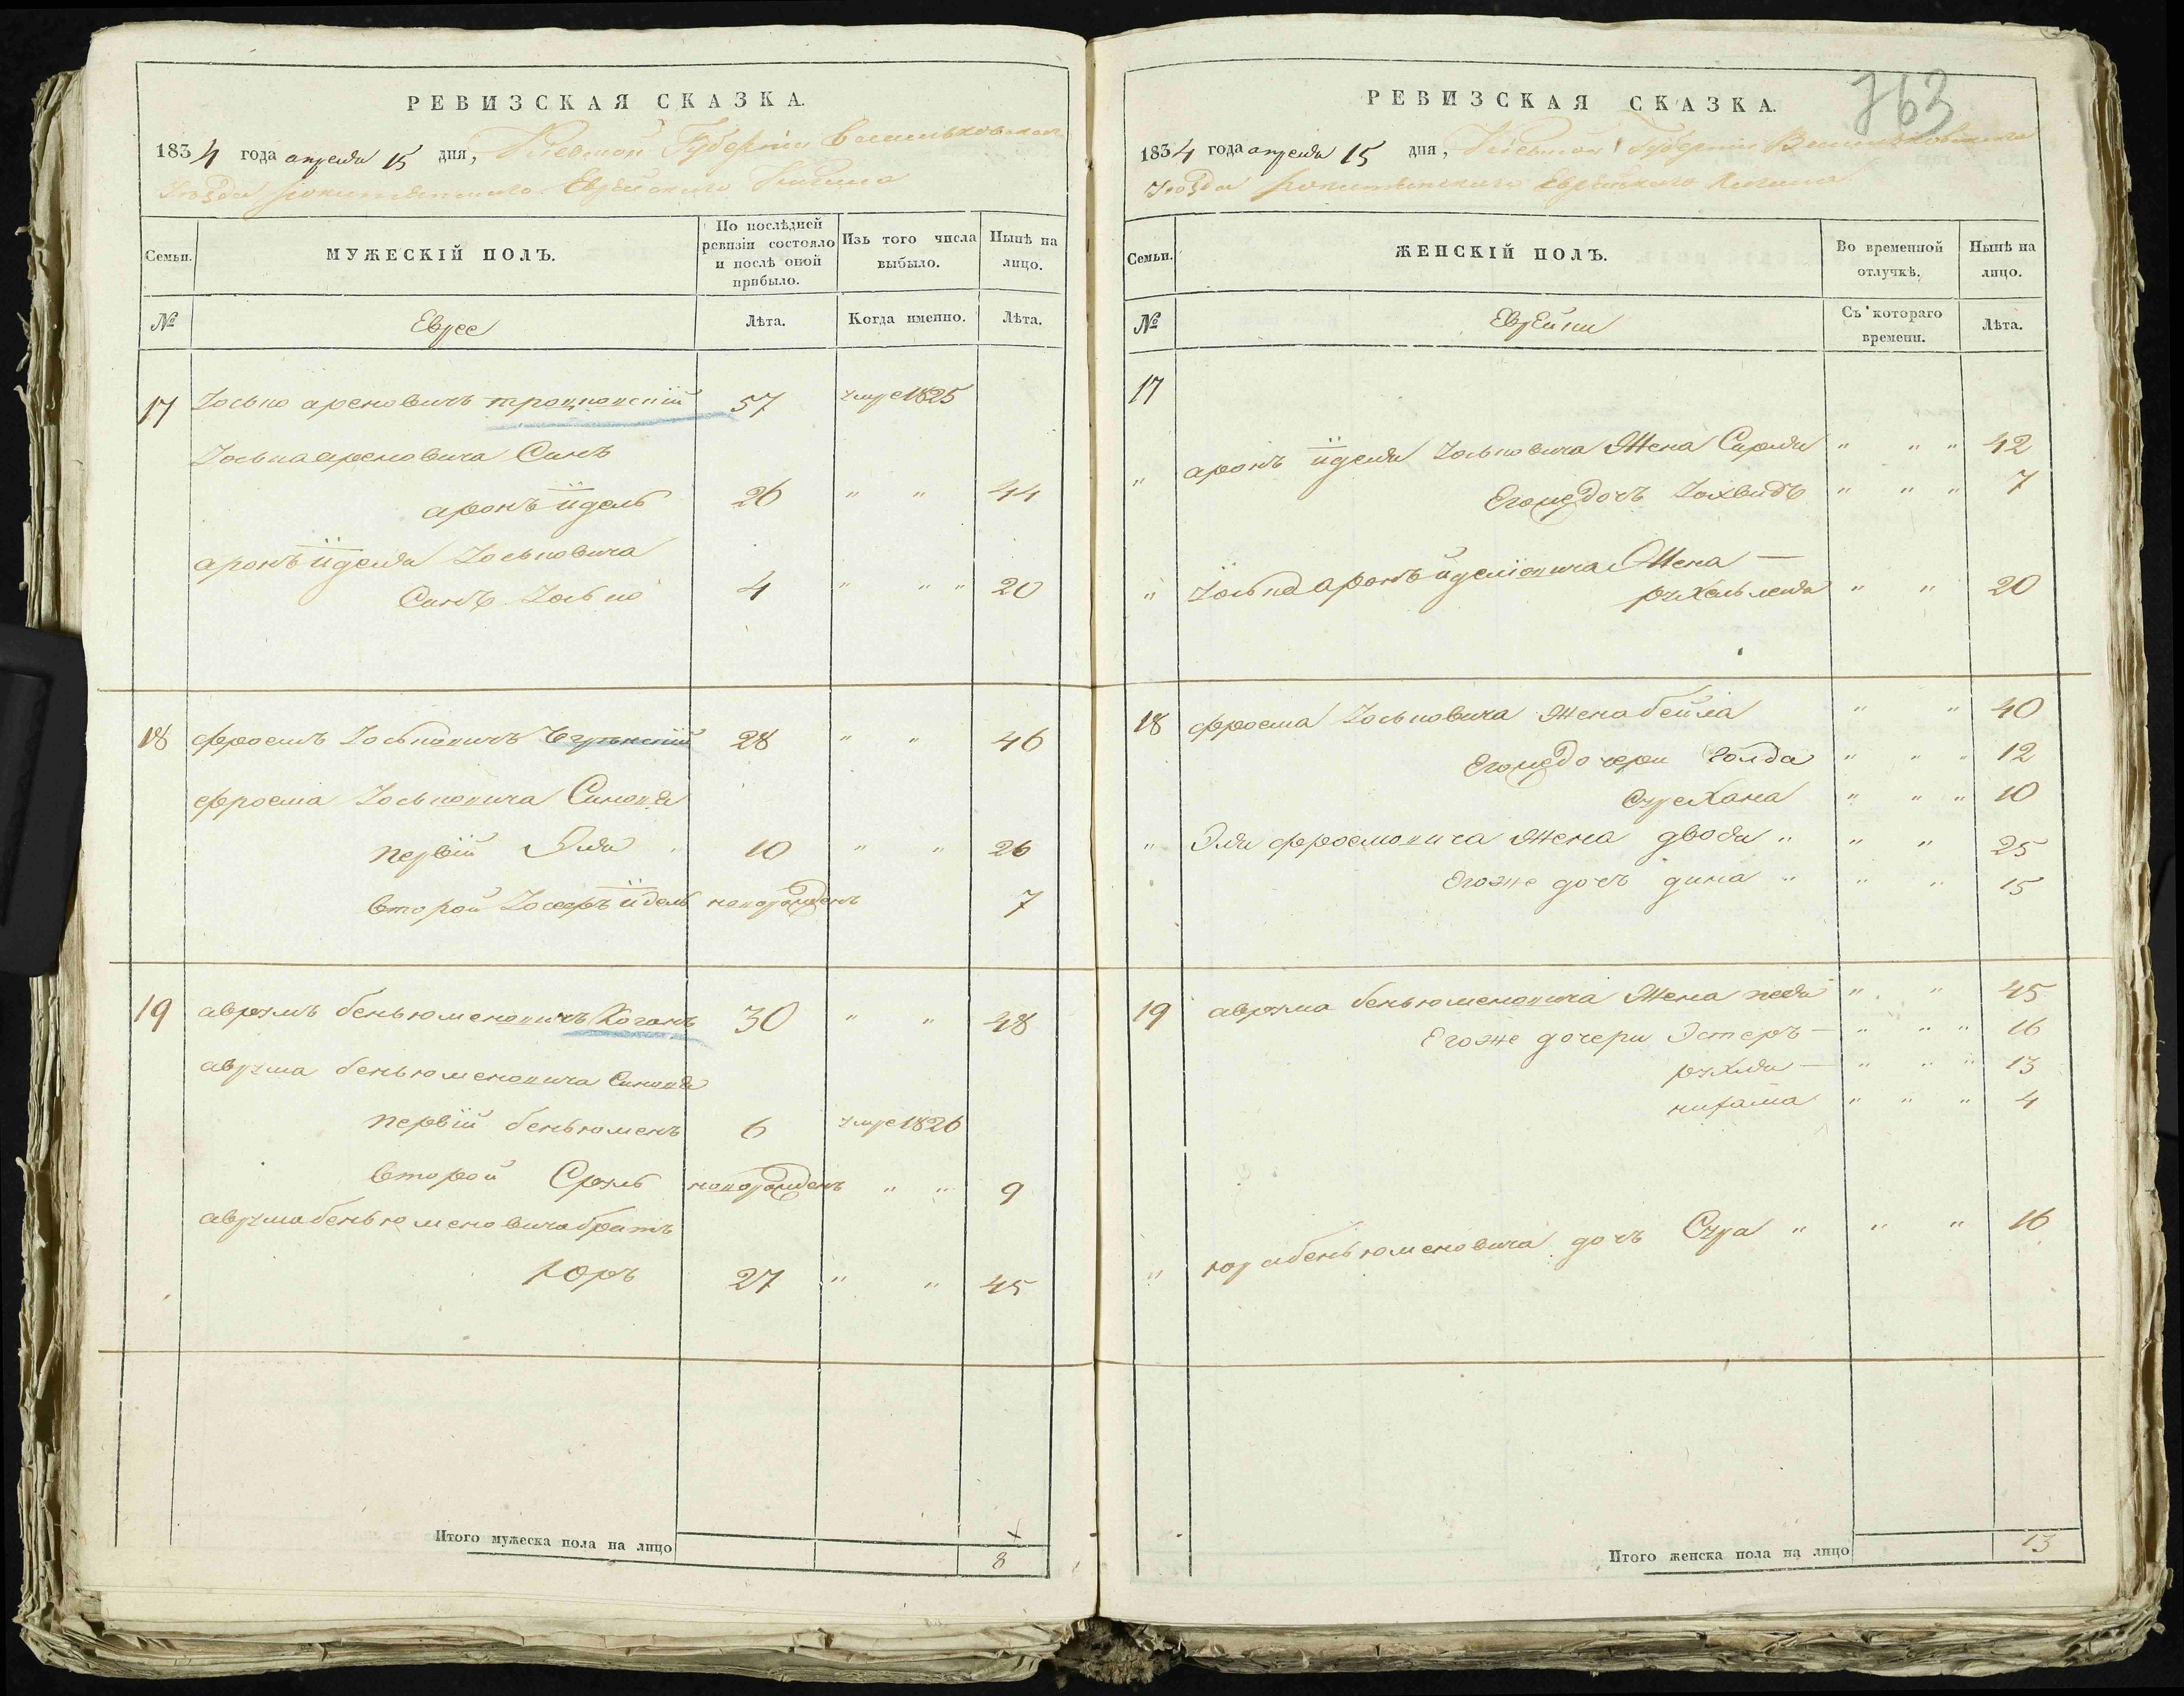 РЕВИЗСКАЯ СКАЗКА.
1834 года апреля 15 дня, Киевской Губернии Васильковскаго
Уезда Рокитянского Еврейского Кагала
Семьи.
МУЖЕСКІЙ ПОЛЪ.
По послѣдней ревизіи состояло и послѣ оной прибыло.
Изъ того числа выбыло.
Нынѣ на лицо.
№
Еврее
Лѣта.
Когда именно.
Лѣта.
17 Иосько ароновичъ 57 умре 1825
Иоська ароновича Синъ
аронъ идель 26 " " 44
аронъ иделя Иоськовича
Синъ Иосько 4 " " " 20
18 фроемъ Иоськовичъ 28 " " 46
фроема Иоськовича Синовя
первій Эля 10 " " 26
второй Иосефъ идель новорожденъ 7
19 аврумъ беньюменовичъ Коганъ 30 " " 48
аврума беньюменовича Синовя
первій беньюменъ 6 умре 1826
второй Сруль новорожденъ " " 9
аврума беньюменовича братъ
Юръ 27 " " 45
Итого мужеска пола на лицо 8
763
РЕВИЗСКАЯ СКАЗКА.
1834 года апреля 15 дня, Киевской Губернии Васильковскаго
Уезда Рокитянского Еврейского Кагала
Семьи.
ЖЕНСКІЙ ПОЛЪ.
Во временной отлучкѣ.
Нынѣ на лицо.
№
Еврейки
Съ котораго времени.
Лѣта.
17
" аронъ иделя Иоськовича Жена Сурля " " " 42
Егожедочъ Иохвидъ " " " 7
" Иоська аронъ иделіовича Жена —
рухельлея " " 20
18 фроема Иоськовича Жена бейла " " 40
Егожедочери Голда " " " 12
Сурехана " " " 10
" Эли фроемовича Жена двося " " " 25
Егоже дочъ дина " " " 15
19 аврума беньюменовича Жена песя " " 45
Егоже дочери Эстеръ — " " " 16
рухля — " " " 13
нихама " " " 4
" юра беньюменовича дочъ Сура " " " 16
Итого женска пола на лицо 13